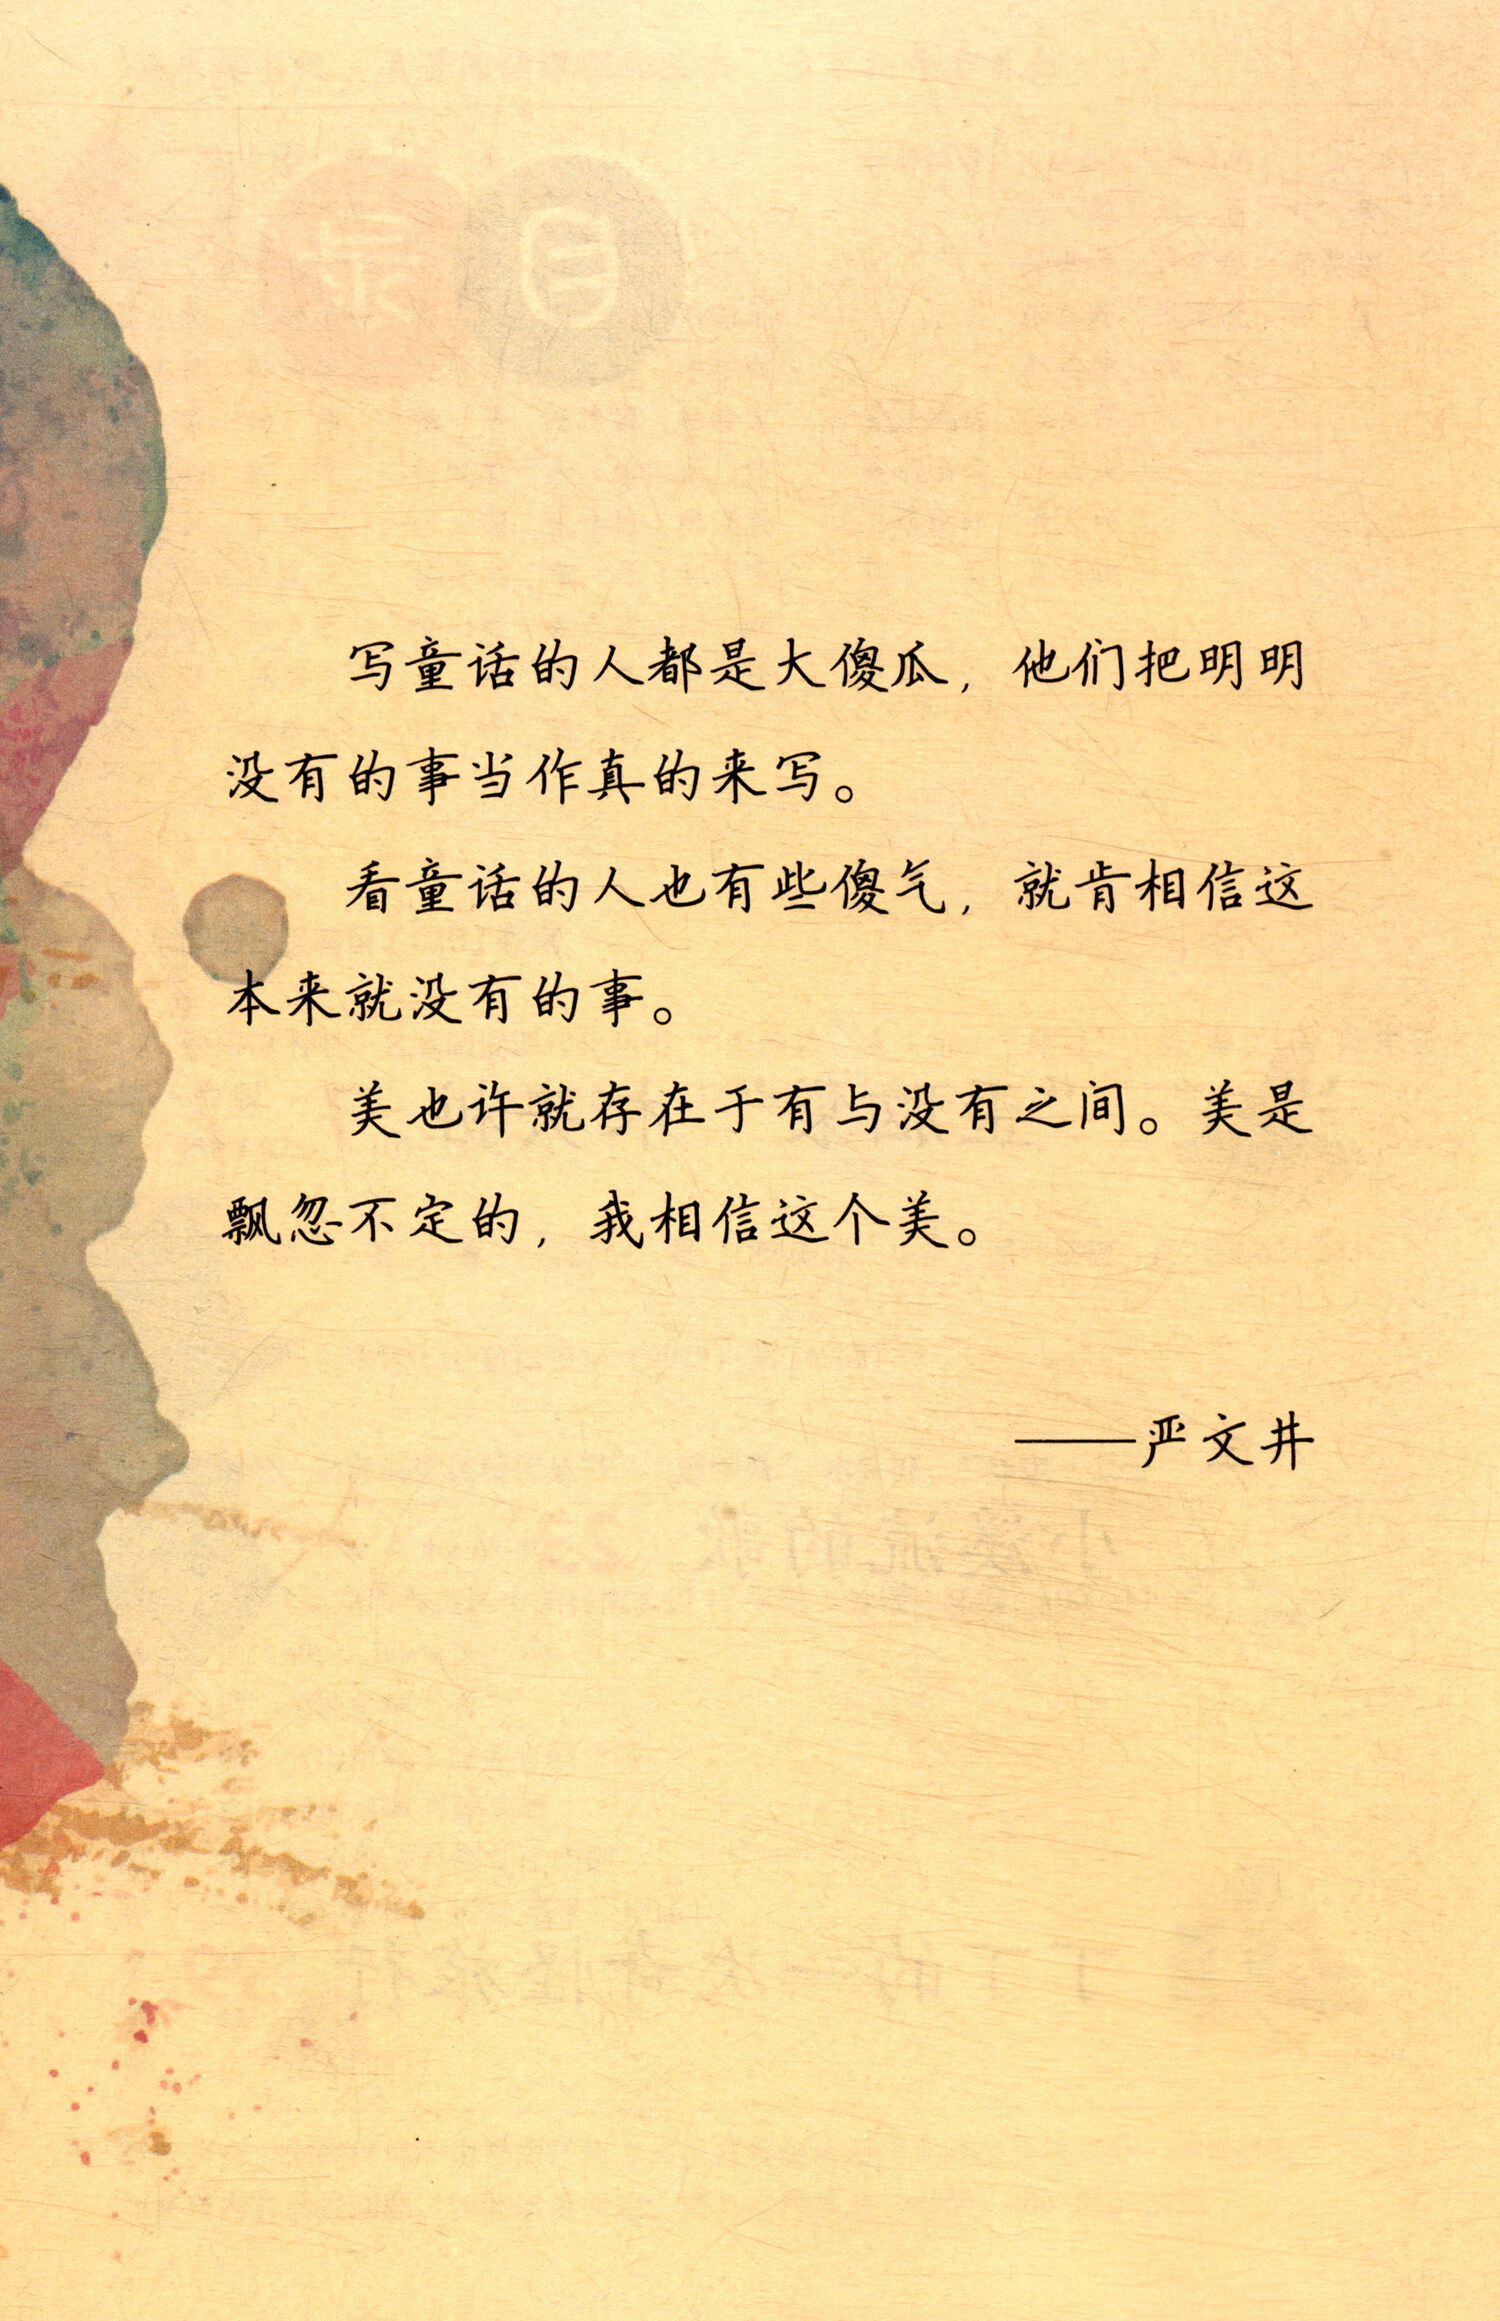 写童话的人都是大傻瓜，他们把明明
没有的事当作真的来写。
看童话的人也有些傻气，就肯相信这
本来就没有的事。
美也许就存在于有与没有之间。美是
飘忽不定的，我相信这个美。
——严文井
目录
小溪流的歌 23
丁丁的一次奇怪旅行